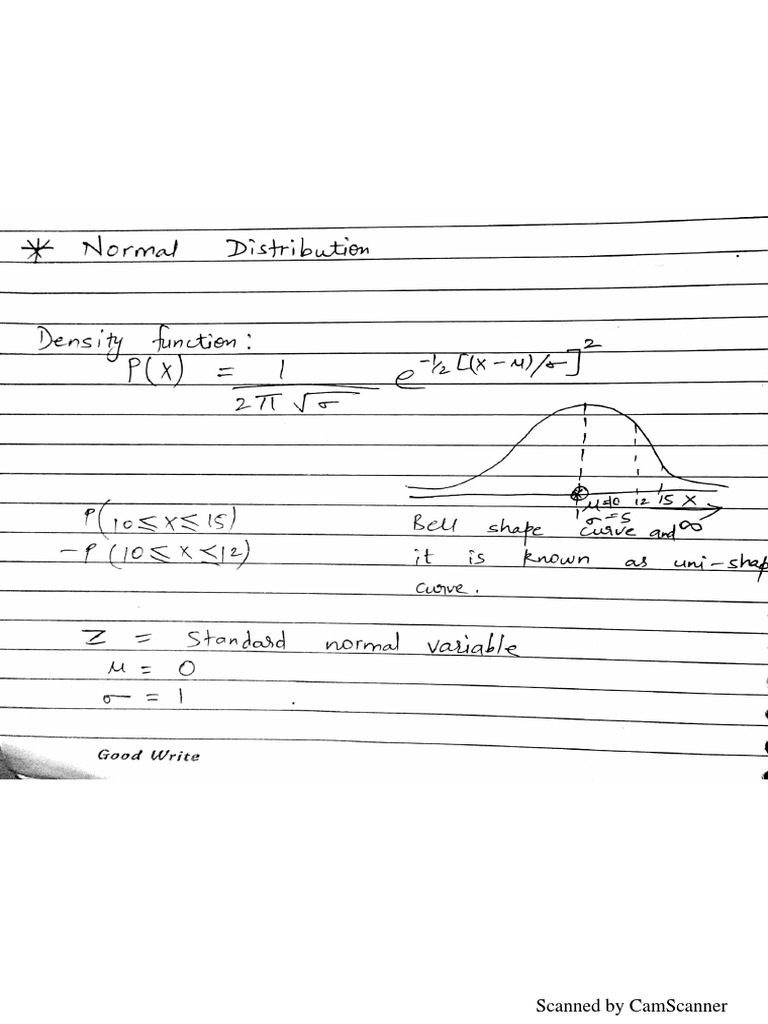 * Normal Distribution
Density function:
P(X) = 1 / 2π √σ e^-1/2 [(X - μ)/σ]^2
12 15 X
σ = 5 ∞
P(10 ≤ X ≤ 15)
- P(10 ≤ X ≤ 12)
Bell shape curve and
it is known as uni-shap
curve.
Z = Standard normal variable
μ = 0
σ = 1
Good Write
Scanned by CamScanner